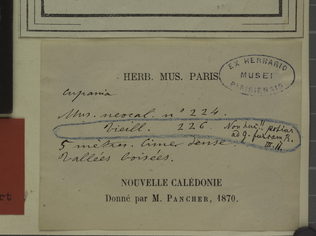 HERB. MUS. PARIS
EX HERBARIO
MUSEI
PARISIENSIS
Cupania
Mus. neocal. nº 224.
Vieill. 226. Non potius
5 mètres. Cimes dense
Vallées boisées.
NOUVELLE CALÉDONIE
Donné par M. PANCHER, 1870.